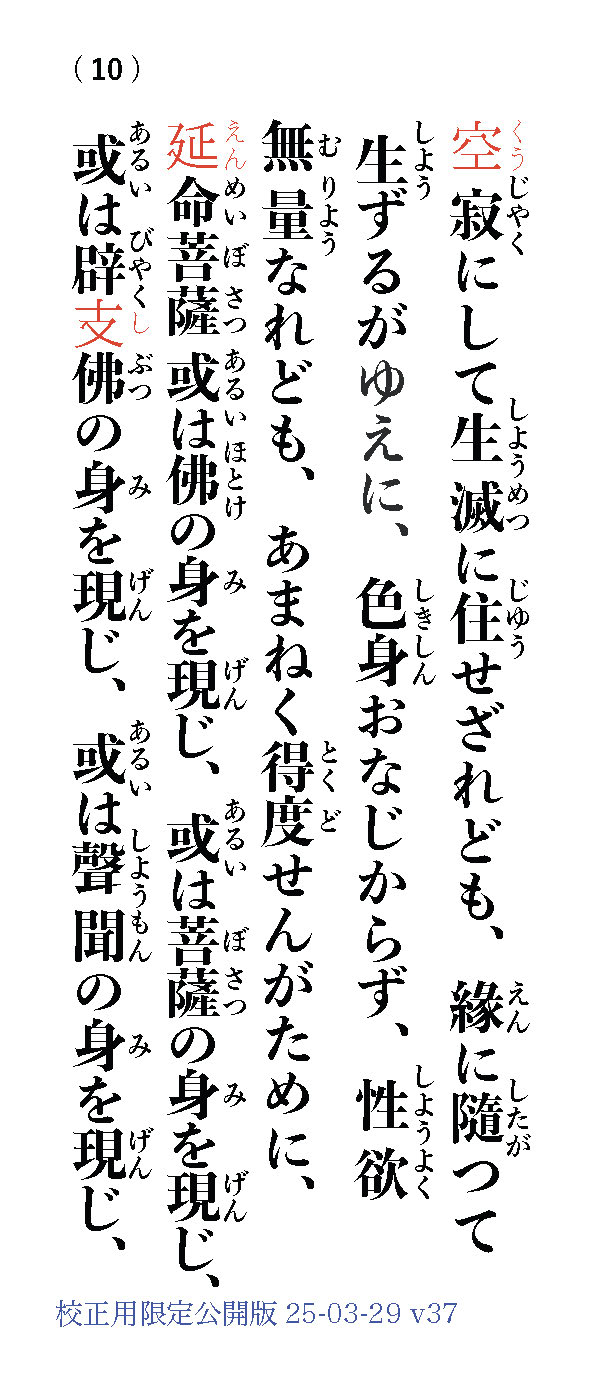 （10）
空寂にして生滅に住せざれども、縁に隨つて
生ずるがゆえに、色身おなじからず、性欲
無量なれども、あまねく得度せんがために、
延命菩薩 或は佛の身を現じ、或は菩薩の身を現じ、
或は辟支佛の身を現じ、或は聲聞の身を現じ、
校正用限定公開版 25-03-29 v37